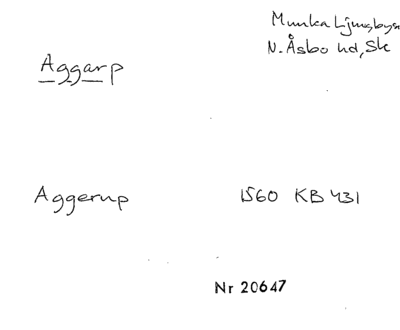 Munka Ljungbysn
N. Åsbo hd, Sk
Aggarp
Aggerup 1560 KB 431
Nr 20647